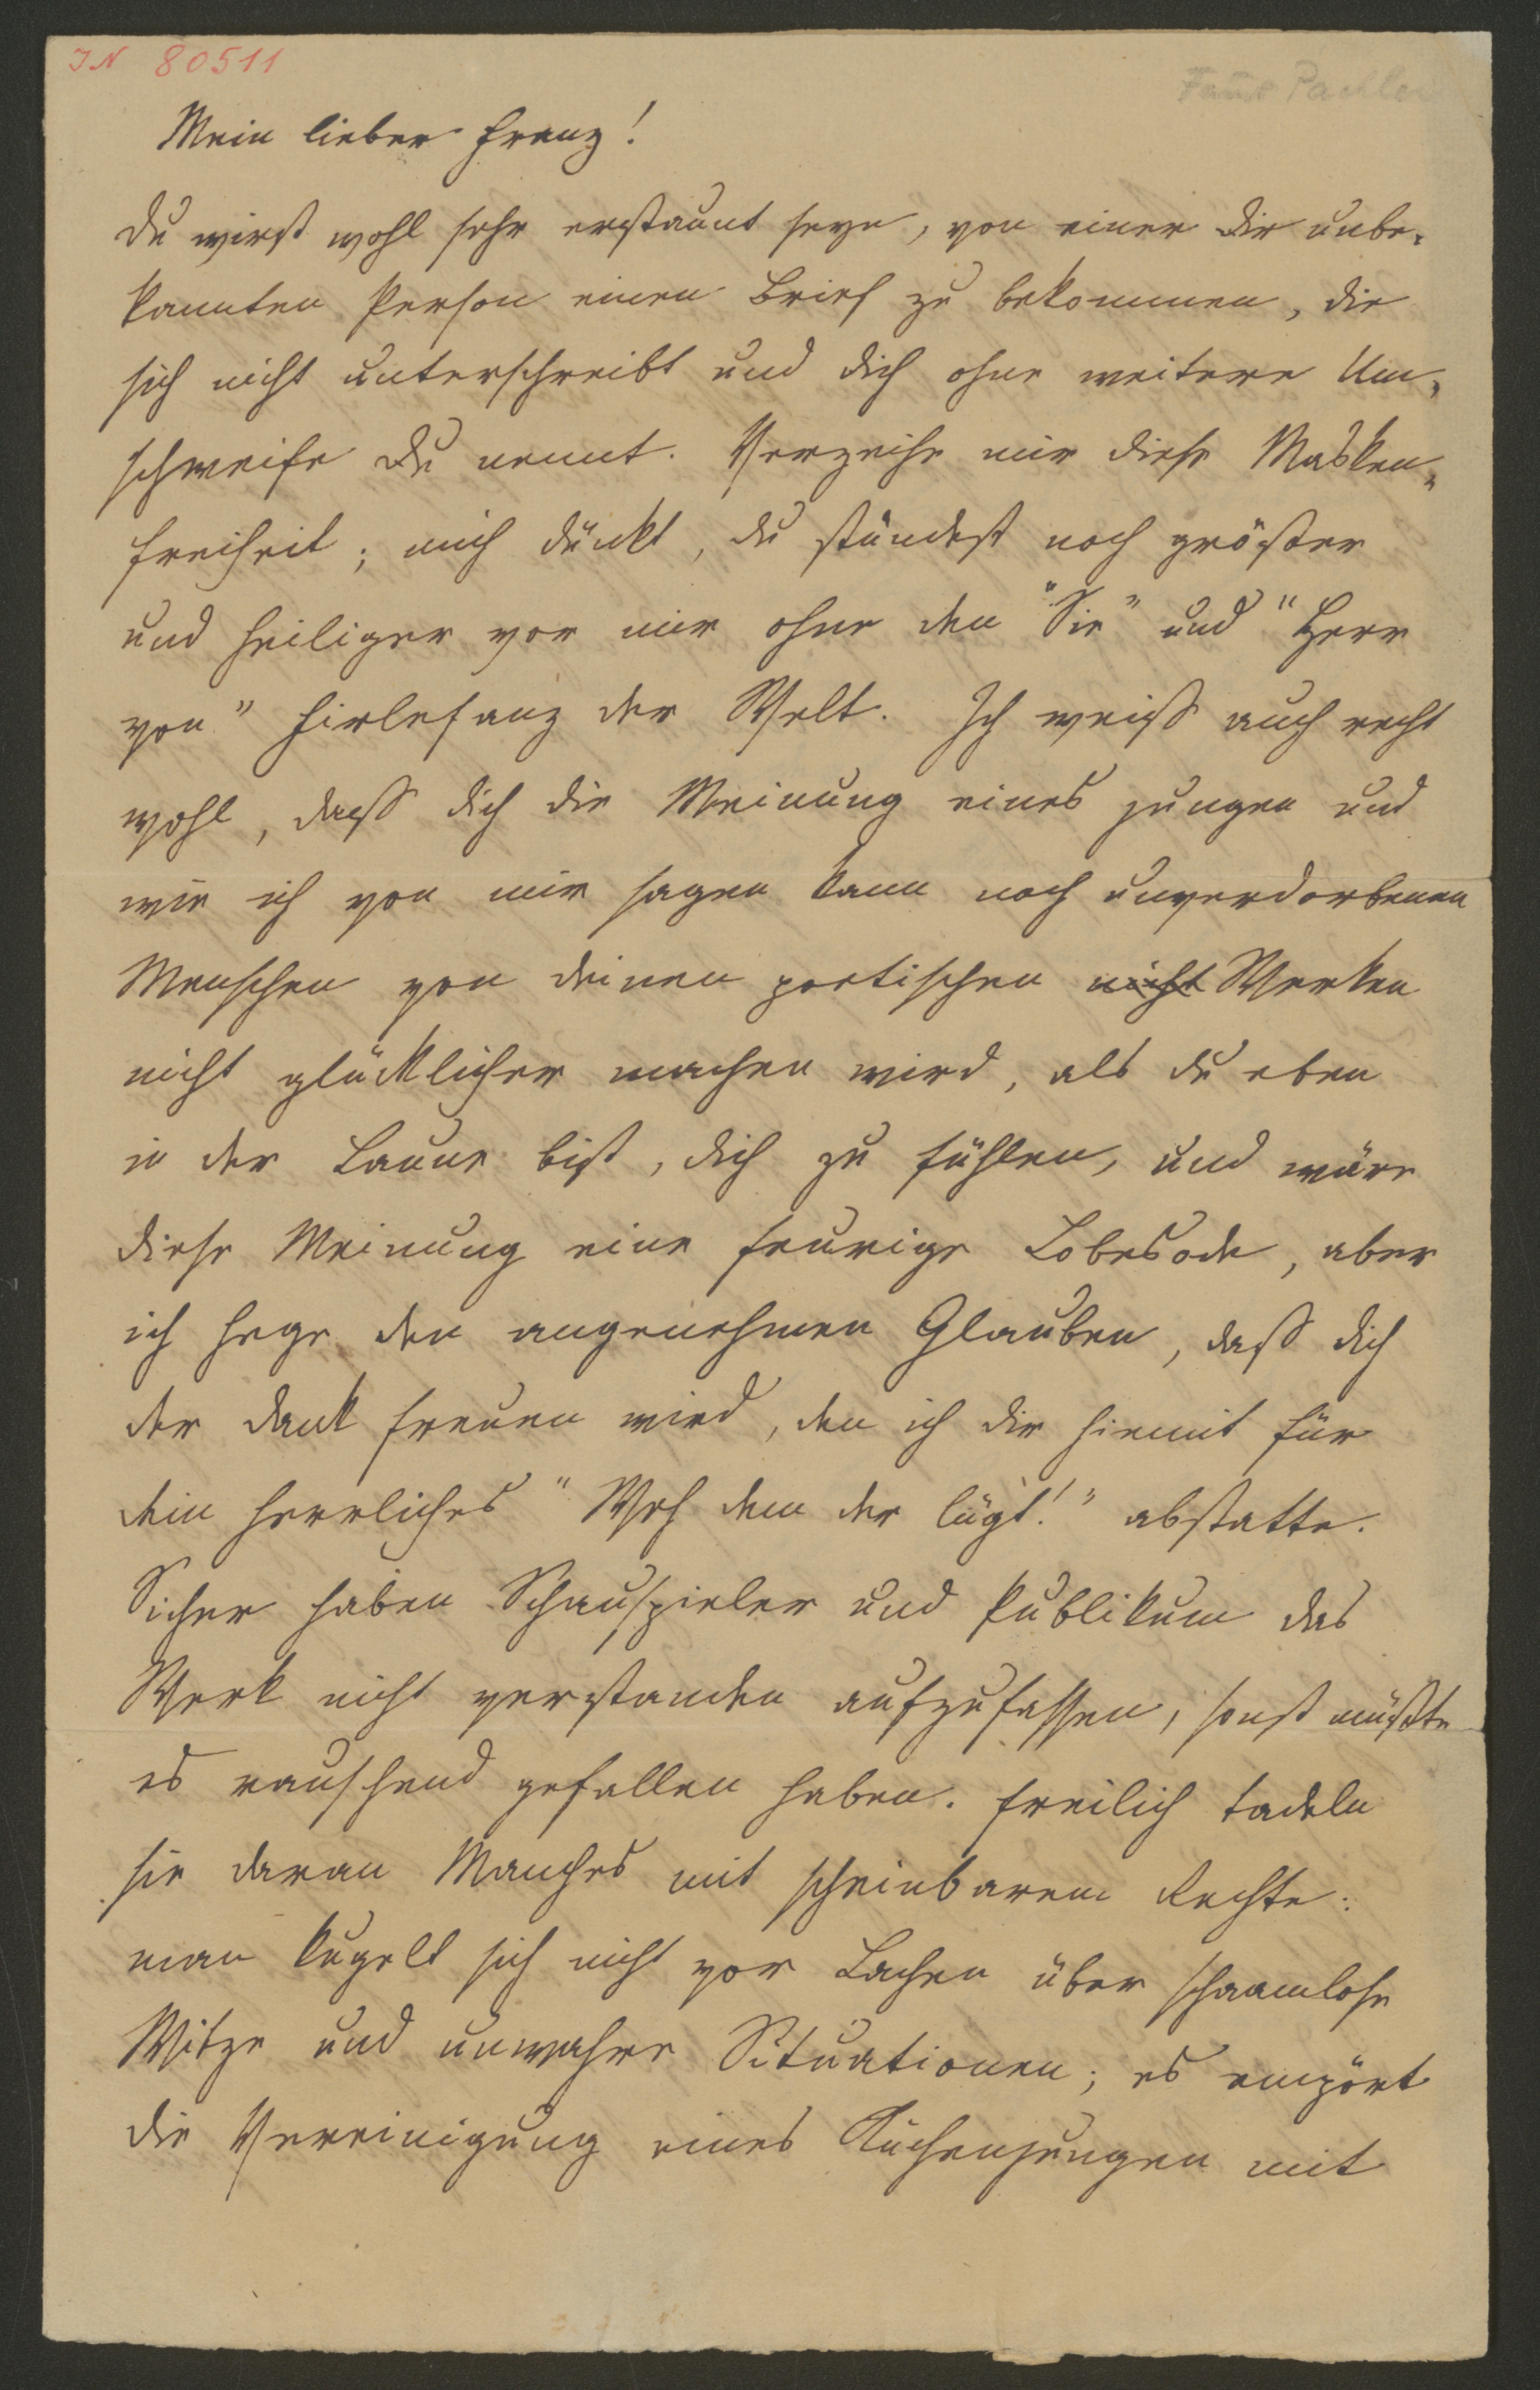 IN 80511
Faust Pachler
Mein lieber Franz!
Du wirst wohl sehr erstaunt seyn, von einer dir unbe-
kannten Person einen Brief zu bekommen, die
sich nicht unterschreibt und dich ohne weitere Um-
schweife Du nennt. Verzeihe mir diese Masken-
freiheit; mich dünkt, du stündest noch größer
und heiliger vor mir ohne den "Sie" und "Herr
von" Firlefanz der Welt. Ich weiß auch recht
wohl, daß dich die Meinung eines jungen und
wie ich von mir sagen kann noch unverdorbenen
Menschen von deinen poetischen nicht Werken
nicht glücklicher machen wird, als du eben
in der Laune bist, dich zu fühlen, und wäre
diese Meinung eine feurige Lobesode, aber
ich hege den angenehmen Glauben, daß dich
der Dank freuen wird, den ich dir hiemit für
dein herrliches "Weh dem der lügt!" abstatte.
Sicher haben Schauspieler und Publikum das
Werk nicht verstanden aufzufassen, sonst müßte
es rauschend gefallen haben. Freilich tadeln
sie daran Manches mit scheinbarem Rechte:
man kugelt sich nicht vor Lachen über schaamlose
Witze und unwahre Situationen; es empört
die Vereinigung eines Küchenjungen mit